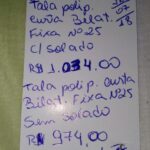 Tala polip.
curta Bilat.
Fixa Nº 25
C/ Solado
R$ 1.034,00
Tala polip. curta
Bilat. Fixa Nº25
Sem Solado
R$ 974,00
07
18